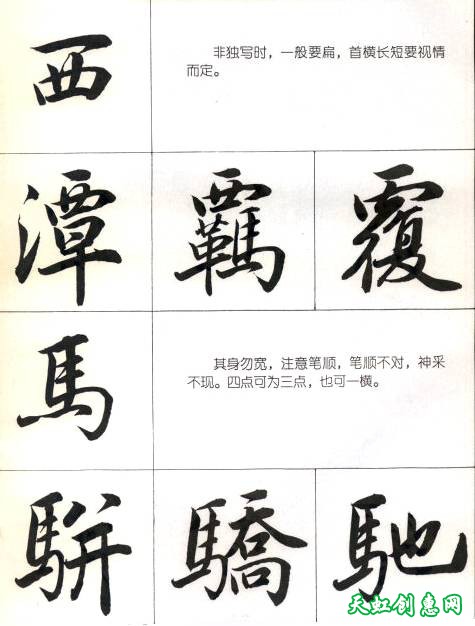 西
非独写时，一般要扁，首横长短要视情
而定。
潭 覊 覆
馬
其身勿宽，注意笔顺，笔顺不对，神采
不现。四点可为三点，也可一横。
駢 驕 馳
天虹创意网